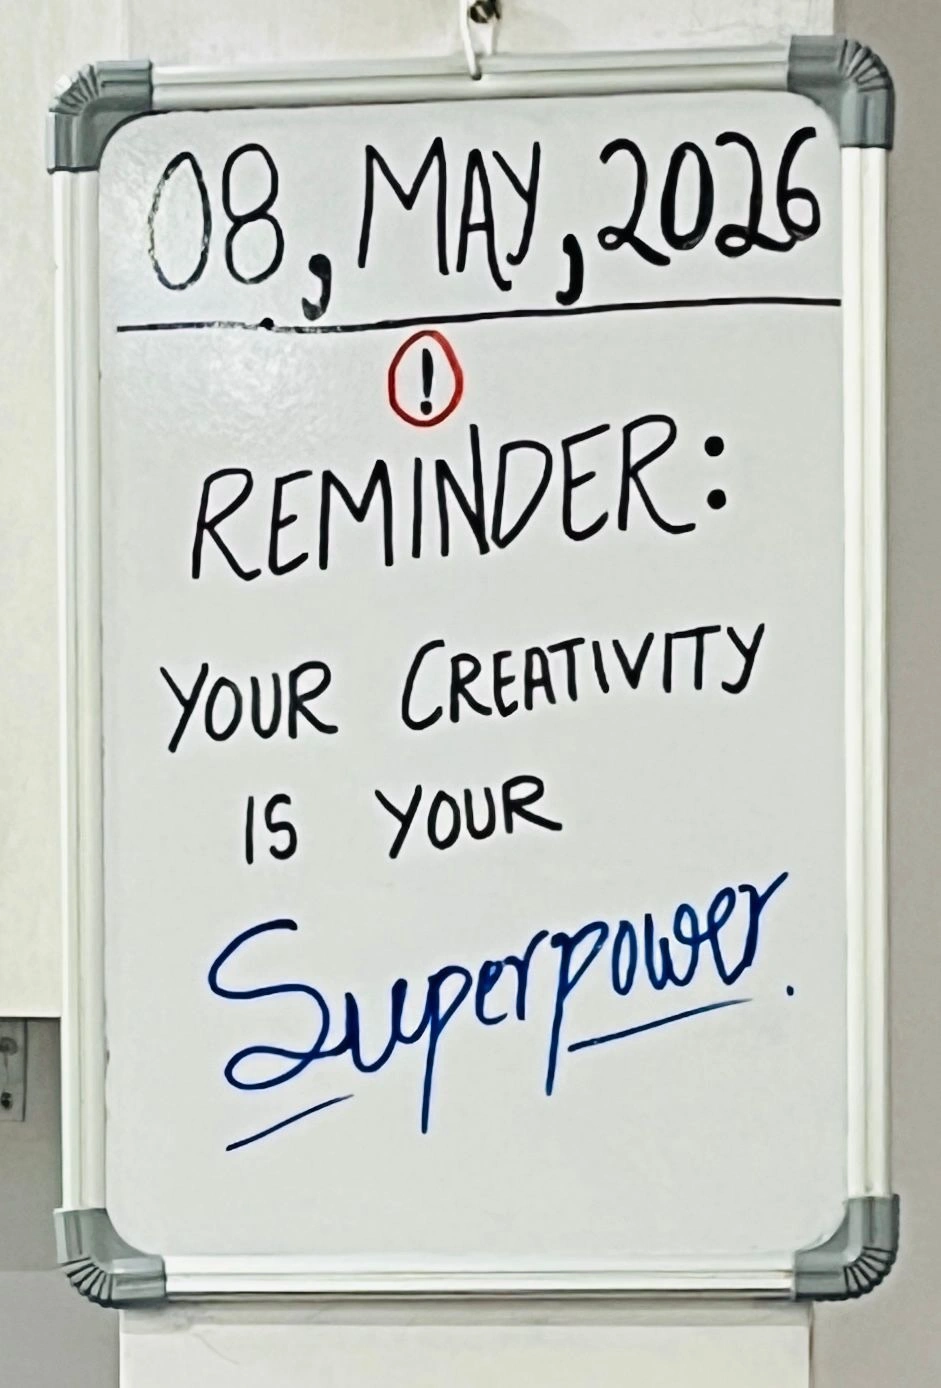 08, MAY, 2026
!
REMINDER:
YOUR CREATIVITY
IS YOUR
Superpower.